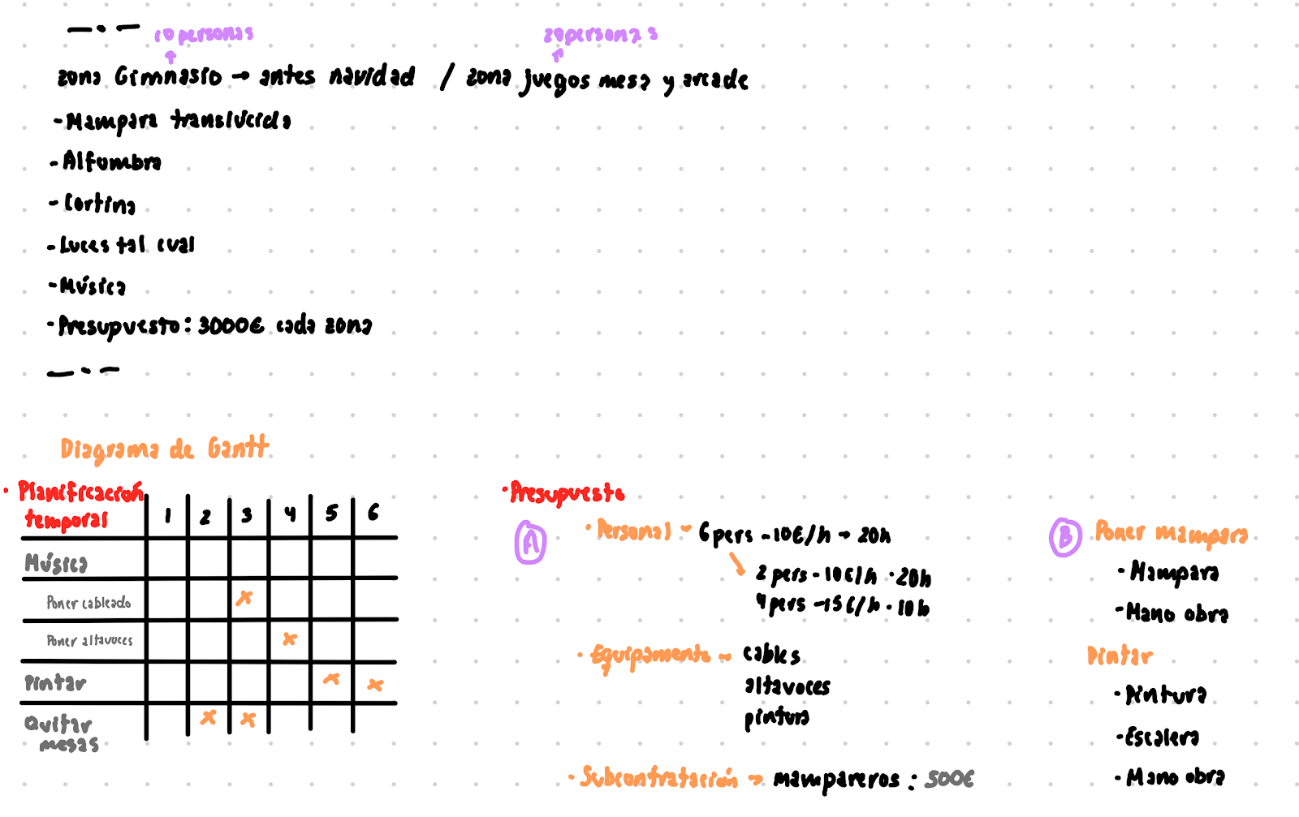 10 personas
20 personas
zona Gimnasio → antes navidad / zona juegos mesa y arcade
- Mampara translúcida
- Alfombra
- Cortina
- Luces tal cual
- Música
- Presupuesto: 3000€ cada zona
Diagrama de Gantt
· Planificación
temporal 1 2 3 4 5 6
Música
Poner cableado x
Poner altavoces x
Pintar x x
Quitar x x
mesas
· Presupuesto
A
· Personal - 6 pers - 10€/h → 20h
2 pers - 10€/h · 20h
4 pers - 15€/h · 10h
· Equipamento - cables
altavoces
pintura
· Subcontratación → mampareros: 500€
B Poner mampara
- Mampara
- Mano obra
Pintar
- Pintura
- Escalera
- Mano obra